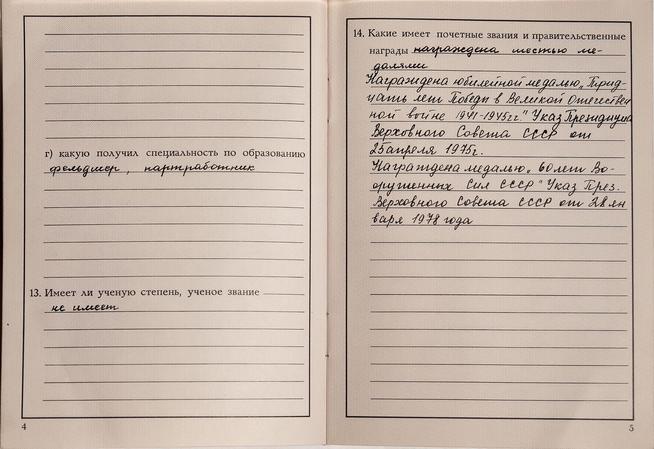 г) какую получил специальность по образованию
фельдшер, партработник
13. Имеет ли ученую степень, ученое звание
не имеет
4
14. Какие имеет почетные звания и правительственные
награды награждена шестью ме-
далями
Награждена юбилейной медалью „Трид-
цать лет Победы в Великой Отечествен
ной войне 1941-1945гг." Указ Президиума
Верховного Совета СССР от
25 апреля 1975г.
Награждена медалью „60 лет Во-
оруженных Сил СССР" Указ През.
Верховного Совета СССР от 28 ян
варя 1978 года
5